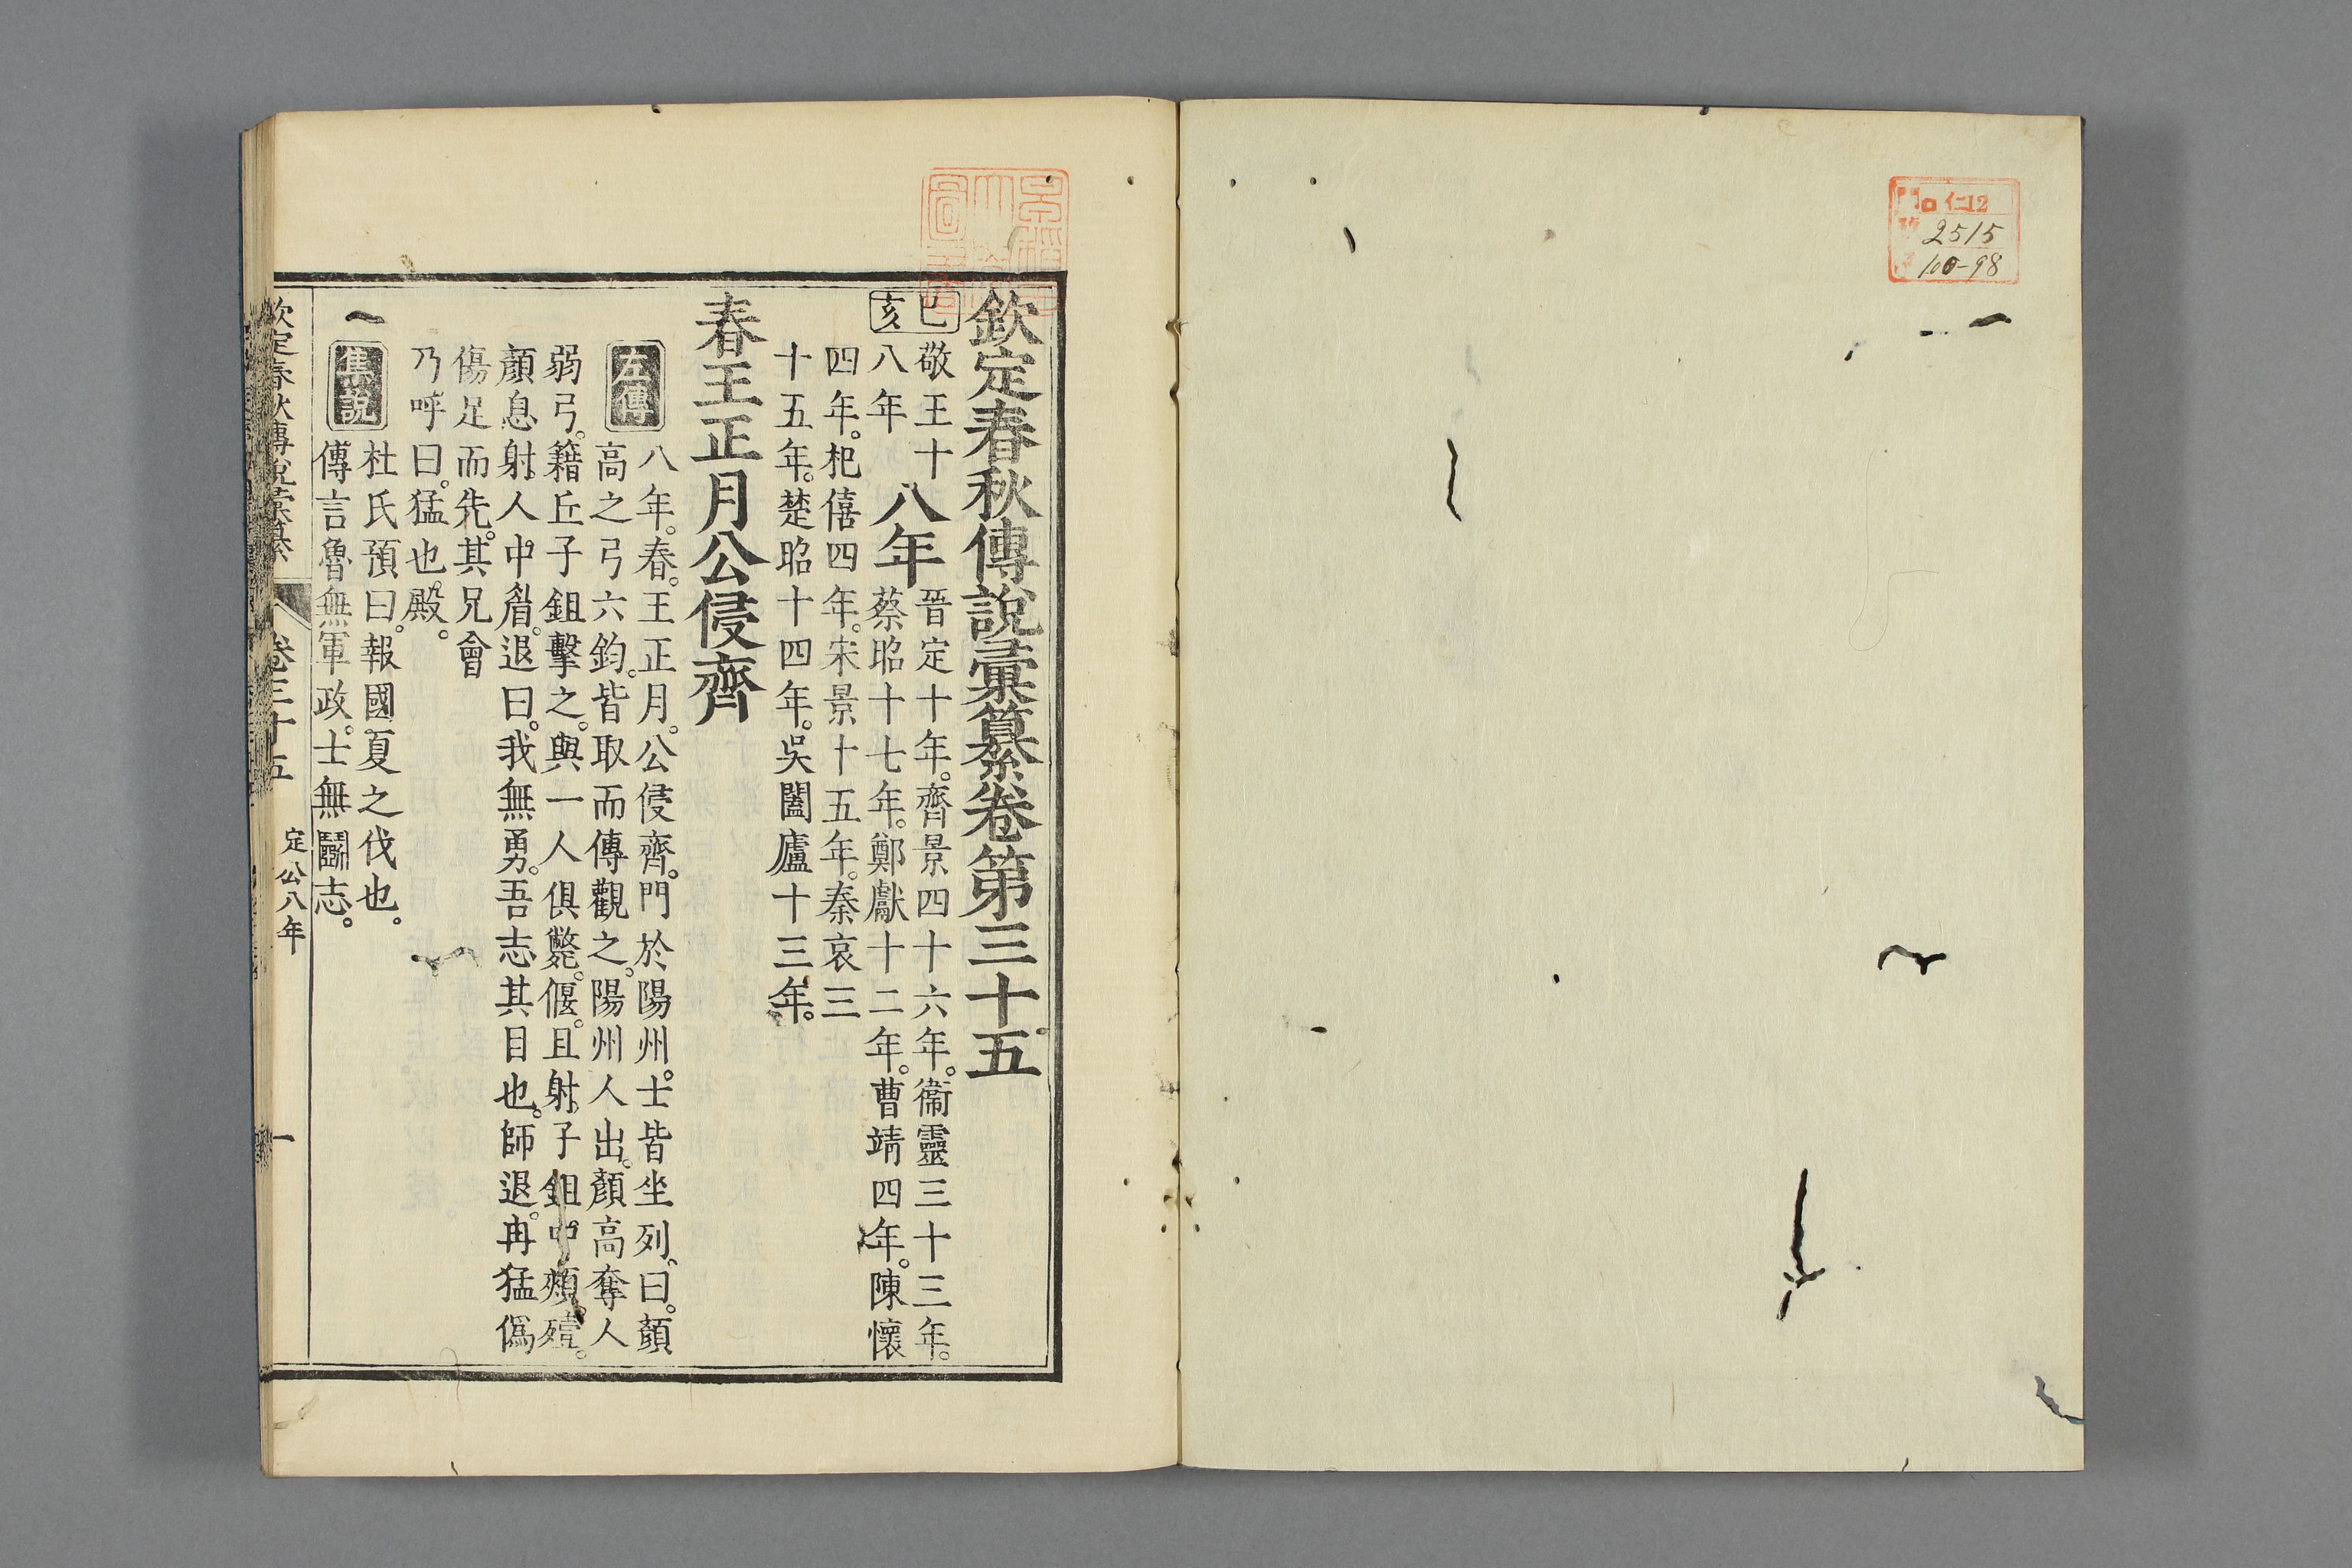 仁12
2515
100-98
欽定春秋傳說彙纂卷第三十五
己亥
敬王十八年
八年
晉定十年。齊景四十六年。衞靈三十三年。
蔡昭十七年。鄭獻十二年。曹靖四年。陳懷
四年。杞僖四年。宋景十五年。秦哀三
十五年。楚昭十四年。吳闔廬十三年。
春王正月公侵齊
左傳
八年。春。王正月。公侵齊。門於陽州。士皆坐列、曰。顏
高之弓六鈞。皆取而傳觀之。陽州人出。顏高奪人
弱弓。籍丘子鉏擊之。與一人俱斃。偃。且射子鉏。中頰。殪。
顏息射人中眉。退曰。我無勇。吾志其目也。師退。冉猛僞
傷足而先。其兄會
乃呼曰。猛也。殿。
集說
杜氏預曰。報國夏之伐也。
傳言魯無軍政。士無鬭志。
欽定春秋傳說彙纂
卷三十五
定公八年
一